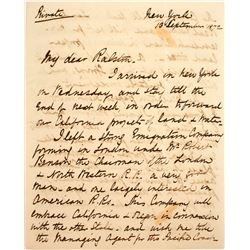 Private
New York
13 September 1872
My dear Ralston.
I arrived in New York
on Wednesday, and stay till the
End of next week in order to forward
our California project of Land & Water.
I left a strong Emigration Company
forming in London under Mr Robert
Benson, the Chairman of the London
& North Western R.R. a very good
man - and one largely interested in
American R.Rs. This Company will
embrace California & Negn in connexion
with the other State - and wish me to be
the Managing Agent for the Pacific